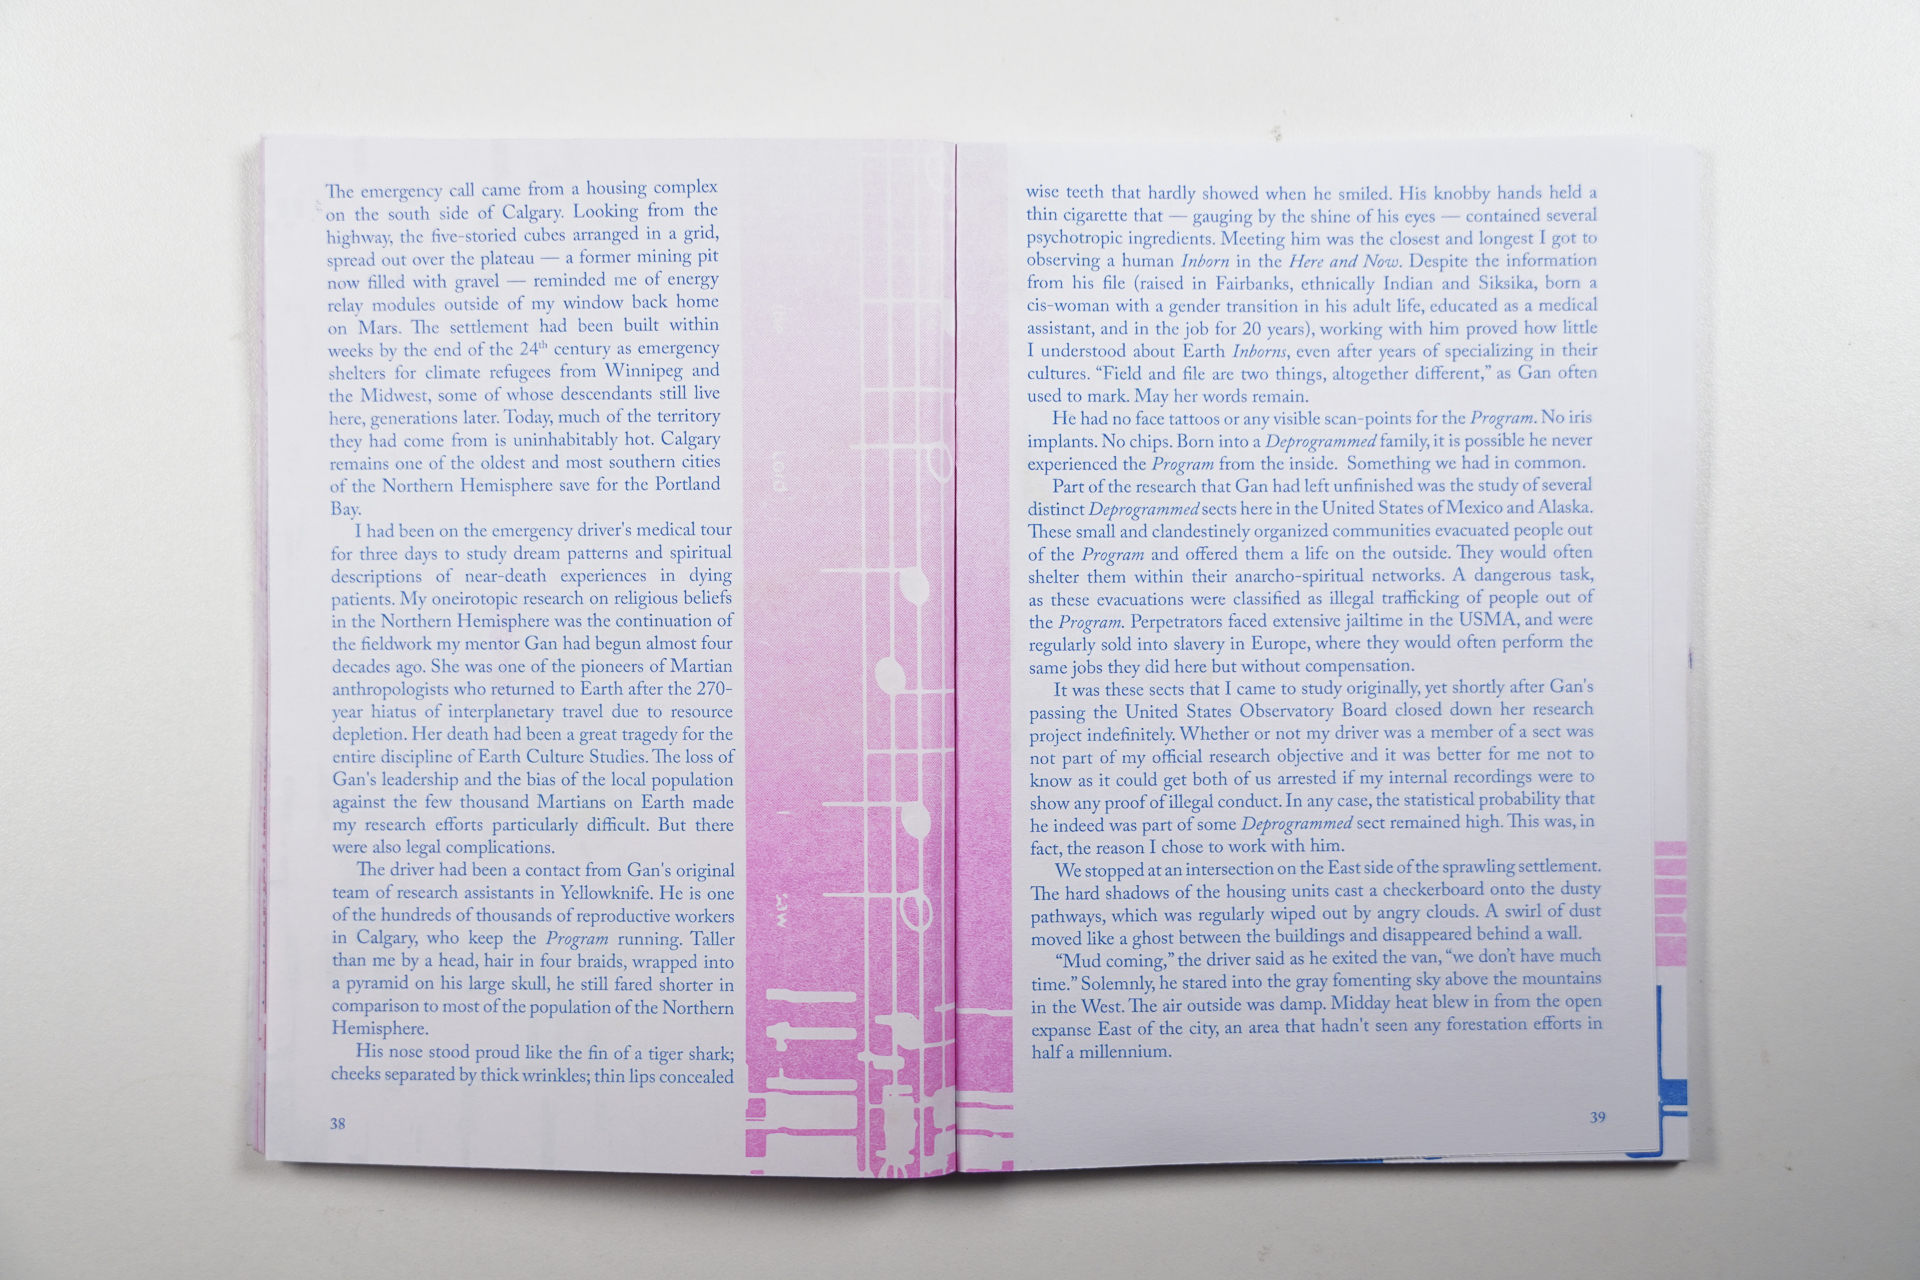 The emergency call came from a housing complex
on the south side of Calgary. Looking from the
highway, the five-storied cubes arranged in a grid,
spread out over the plateau — a former mining pit
now filled with gravel — reminded me of energy
relay modules outside of my window back home
on Mars. The settlement had been built within
weeks by the end of the 24th century as emergency
shelters for climate refugees from Winnipeg and
the Midwest, some of whose descendants still live
here, generations later. Today, much of the territory
they had come from is uninhabitably hot. Calgary
remains one of the oldest and most southern cities
of the Northern Hemisphere save for the Portland
Bay.
I had been on the emergency driver's medical tour
for three days to study dream patterns and spiritual
descriptions of near-death experiences in dying
patients. My oneirotopic research on religious beliefs
in the Northern Hemisphere was the continuation of
the fieldwork my mentor Gan had begun almost four
decades ago. She was one of the pioneers of Martian
anthropologists who returned to Earth after the 270-
year hiatus of interplanetary travel due to resource
depletion. Her death had been a great tragedy for the
entire discipline of Earth Culture Studies. The loss of
Gan's leadership and the bias of the local population
against the few thousand Martians on Earth made
my research efforts particularly difficult. But there
were also legal complications.
The driver had been a contact from Gan's original
team of research assistants in Yellowknife. He is one
of the hundreds of thousands of reproductive workers
in Calgary, who keep the Program running. Taller
than me by a head, hair in four braids, wrapped into
a pyramid on his large skull, he still fared shorter in
comparison to most of the population of the Northern
Hemisphere.
His nose stood proud like the fin of a tiger shark;
cheeks separated by thick wrinkles; thin lips concealed
38
the
Lord
I
saw
wise teeth that hardly showed when he smiled. His knobby hands held a
thin cigarette that — gauging by the shine of his eyes — contained several
psychotropic ingredients. Meeting him was the closest and longest I got to
observing a human Inborn in the Here and Now. Despite the information
from his file (raised in Fairbanks, ethnically Indian and Siksika, born a
cis-woman with a gender transition in his adult life, educated as a medical
assistant, and in the job for 20 years), working with him proved how little
I understood about Earth Inborns, even after years of specializing in their
cultures. “Field and file are two things, altogether different,” as Gan often
used to mark. May her words remain.
He had no face tattoos or any visible scan-points for the Program. No iris
implants. No chips. Born into a Deprogrammed family, it is possible he never
experienced the Program from the inside. Something we had in common.
Part of the research that Gan had left unfinished was the study of several
distinct Deprogrammed sects here in the United States of Mexico and Alaska.
These small and clandestinely organized communities evacuated people out
of the Program and offered them a life on the outside. They would often
shelter them within their anarcho-spiritual networks. A dangerous task,
as these evacuations were classified as illegal trafficking of people out of
the Program. Perpetrators faced extensive jailtime in the USMA, and were
regularly sold into slavery in Europe, where they would often perform the
same jobs they did here but without compensation.
It was these sects that I came to study originally, yet shortly after Gan's
passing the United States Observatory Board closed down her research
project indefinitely. Whether or not my driver was a member of a sect was
not part of my official research objective and it was better for me not to
know as it could get both of us arrested if my internal recordings were to
show any proof of illegal conduct. In any case, the statistical probability that
he indeed was part of some Deprogrammed sect remained high. This was, in
fact, the reason I chose to work with him.
We stopped at an intersection on the East side of the sprawling settlement.
The hard shadows of the housing units cast a checkerboard onto the dusty
pathways, which was regularly wiped out by angry clouds. A swirl of dust
moved like a ghost between the buildings and disappeared behind a wall.
“Mud coming,” the driver said as he exited the van, “we don't have much
time.” Solemnly, he stared into the gray fomenting sky above the mountains
in the West. The air outside was damp. Midday heat blew in from the open
expanse East of the city, an area that hadn't seen any forestation efforts in
half a millennium.
39